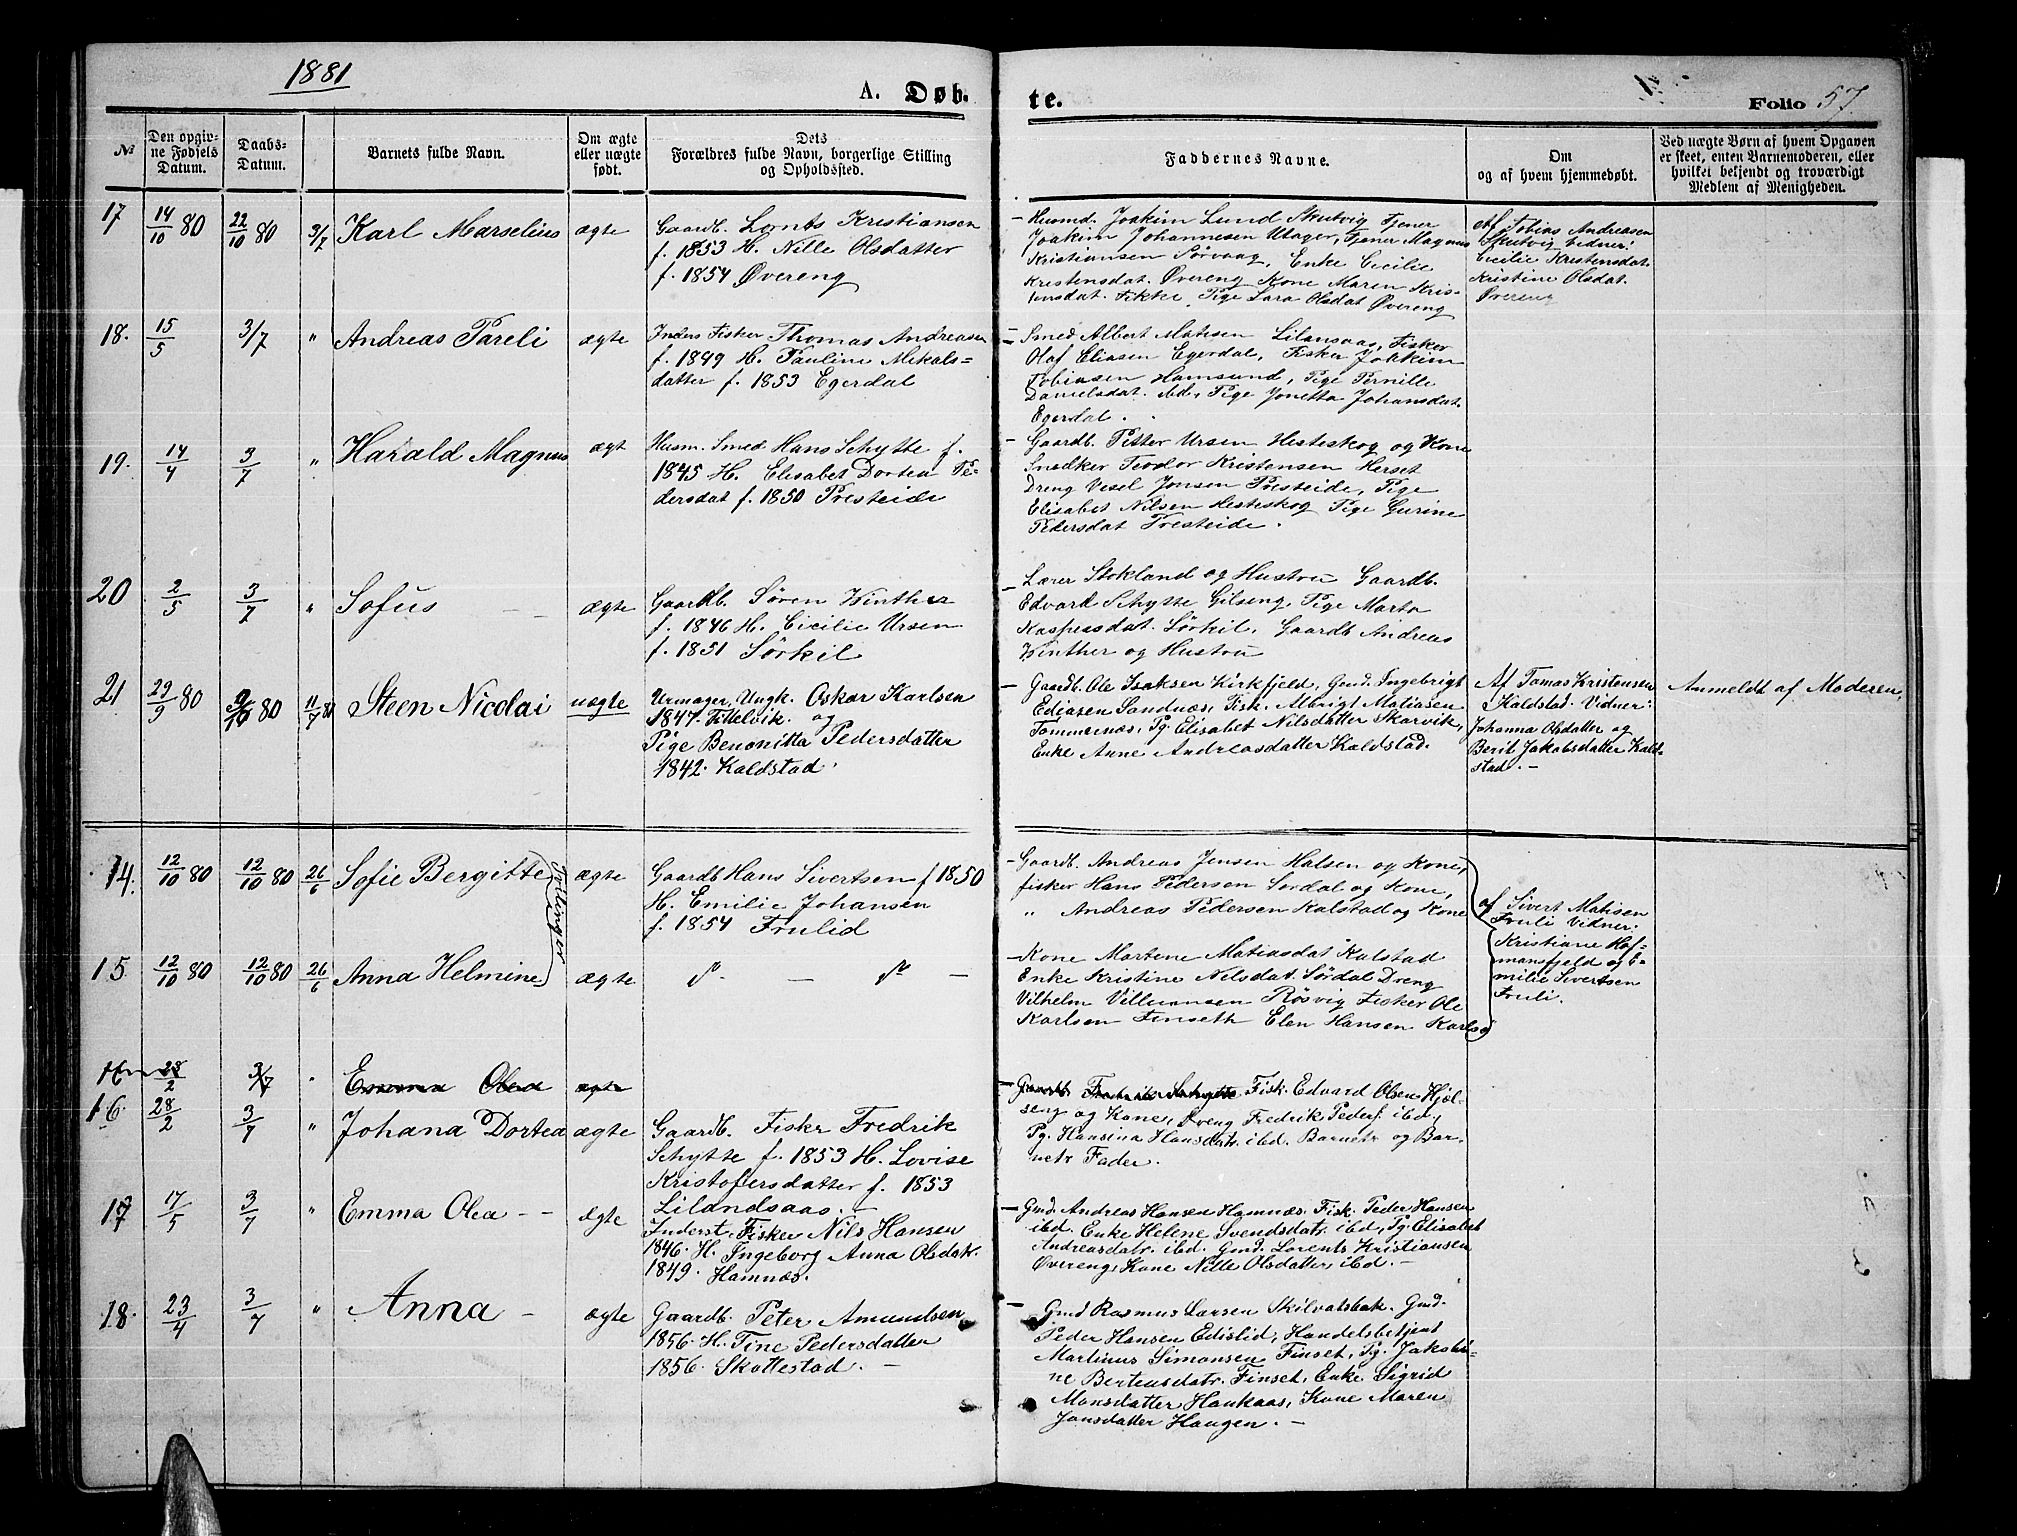 1881
A. Døb.
te.
Folio 57.
№
Den opgiv-
ne Fødsels
Datum.
Daabs-
Datum.
Barnets fulde Navn.
Om ægte
eller uægte
født.
Dets
Forældres fulde Navn, borgerlige Stilling
og Opholdssted.
Faddernes Navne.
Om
og af hvem hjemmedøbt.
Ved uægte Børn af hvem Opgaven
er skeet, enten Barnemoderen, eller
hvilket bekjendt og troværdigt
Medlem af Menigheden.
17 14/10 80 22/10 80 3/7 Karl Marselius ægte
Gaardb. Lornts Kristiansen
f. 1853 H. Nille Olsdatter
f. 1854 Øvereng
- Husmd. Joakim Lund Skutvig Tjener
Joakim Johannesen Utager, Tjener Magnus
Kristiansen Sørvaag, Enke Cecilie
Kristensdat. Øvereng Kone Maren Kris-
tensdat. Pige Sara Olsdat Øvereng
Af Tobias Andreasen
Skutvig Vidner:
Cecilie Kristensdat.
Kristine Olsdat.
Øvereng
18. 15/5 3/7 " Andreas Pareli ægte
Inderst Fisker Thomas Andreasen
f. 1849 H. Pauline Mikals=
datter f. 1853 Egerdal
- Smed Albert Matisen Lilansaas, Fisker
Olaf Eliasen Egerdal, Fisker Joakim
Tobiasen Hamsund, Pige Pernille
Danielsdat. ibd, Pige Jonetta Johansdat.
Egerdal.
19. 14/4 3/7 " Harald Magnus ægt
Husm. Smed Hans Schytte f.
1845 H. Elisabet Dortea Pe-
dersdat f. 1850 Presteide
- Gaardb. Petter Ursen Hesteskog og Kone
Snedker Teodor Kristensen Herset
Dreng Vesel Jonsen Presteide, Pige
Elisabet Nilsen Hesteskog Pige Gurine
Pedersdat Presteide.
20 2/5 3/7 " Sofus - ægte
Gaardb. Søren Winther
f. 1846 H. Cicilie Ursen
f. 1851 Sørkil
- Lærer Stokland og Hustru Gaardb.
Edvard Schytte Gilseng, Pige Marta
Kaspersdat. Sørkil, Gaardb Andreas
Winther og Hustru
21 29/9 80 3/10 80 11/7 81 Steen Nicolai uægte
Urmager, Ungk. Oskar Karlsen
1847. og
Pige Benonitta Pedersdatter
1842. Kaldstad.
- Gaardb. Ole Isaksen Kirkfjeld, Gmd. Ingebrigt
Ediasen Sandnæs, Fisk. Albrigt Matiasen
Tommernæs, Pg. Elisabet Nilsdatter Skarvik,
Enke Anne Andreasdatter Kaldstad.
Af Tomas Kristensen
Kaldstad. Vidner:
Johanna Olsdatter og
Berit Jakobsdatter Kald-
stad. -
Anmeldt af Moderen.
14. 12/10 80 12/10 80 26/6 Sofie Bergitte ægte
Tvillinger
Gaardb Hans Sivertsen f 1850
H. Emilie Johansen
f. 1854 Frulid
- Gaardb. Andreas Jensen Halsen og Kone,
fisker Hans Pedersen Sørdal og Kone,
" Andreas Pedersen Kalstad og Kone
af Sivert Matisen
Fruli Vidner:
Kristiane Hof-
mansfjeld og E-
milie Sivertsen
Fruli.
15 12/10 80 12/10 80 26/6 Anna Helmine ægte
- Kone Martene Matiasdat Kalstad
Enke Kristine Nilsdat. Sørdal Dreng
Vilhelm Villumsen Røsvig Fisker Ole
Karlsen Finseth Elen Hansen
16 28/2 3/7 " Emma Olea ægte
16. 28/2 3/7 " Johana Dortea ægte
Gaardb. Fisker Fredrik
Schytte f. 1853 H. Lovise
Kristofersdatter f. 1853
Lilandsaas. -
- Gaardb. Fredrik Schytte Fisk. Edvard Olsen Hjel-
seng og Kone, Dreng Fredrik Peders. ibd,
Pg. Hansina Hansdatr. ibd. Barnets og Bar-
nets Fader.
17 17/5 3/7 " Emma Olea - - ægte
Inderst, Fisker Nils Hansen
1846. H. Ingeborg Anna Olsdatr.
1849. Hamnæs.
- Gmd. Andreas Hansen Hamnæs. Fisk. Peder Hansen
ibd. Enke Helene Svendsdatr. ibd, Pg. Elisabet
Andreasdatr. ibd. Gmd. Lorents Kristiansen
Øvereng, Kone Nille Olsdatter, ibd. -
18. 23/4 3/7 " Anna - ægte
Gaardb. Peter Amundsen
1856. H. Tine Pedersdatter
1856. Skottestad. -
- Gmd Rasmus Larsen Skilvatsbak. Gmd.
Peder Hansen Edislid, Handelsbetjent
Martinus Simonsen Finset, Pg. Jakobi-
ne Berteusdatr. Finset, Enke Sigrid
Monsdatter Haukaas, Kone Maren
Jonsdatter Haugen. -